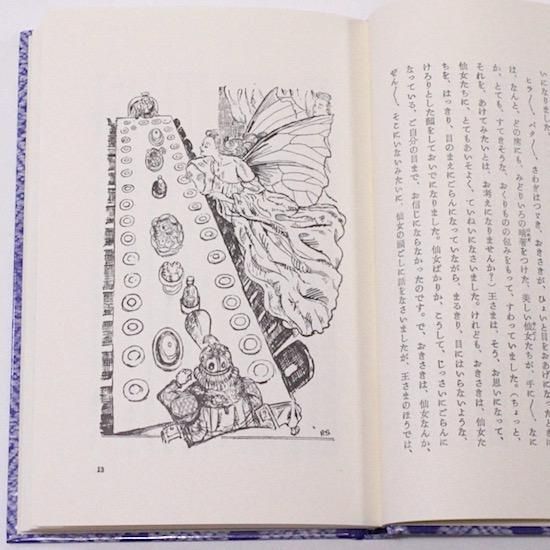 いになりました
ヒラ〳〵、パタ〳〵、さわぎはつづき、おきさきが、ひょいと目をおあげになったときに
は、なんと、どの席にも、みどりいろの晴着をつけた、美しい仙女たちが、手に〳〵、なに
か、とても、すてきそうな、おくりものの包みをもって、すわっていました。（ちょっと、
それを、あけてみたいとは、お考えになりませんか？）王さまは、そう、お思いになって、
仙女たちに、とてもあいそよく、ていねいになさいました。けれども、おきさきは、仙女た
ちを、はっきり、目のまえにごらんになっていながら、まるきり、目にはいらないような、
けろりとした顔をしておいでになりました。仙女ばかりか、こうして、じっさいにごらんに
なっている、ご自分の目まで、お信じにならなかったのです。で、おきさきは、仙女なんか、
ぜん〳〵、そこにいないみたいに、仙女の頭ごしに話をなさいましたが、王さまのほうでは、
RS
13